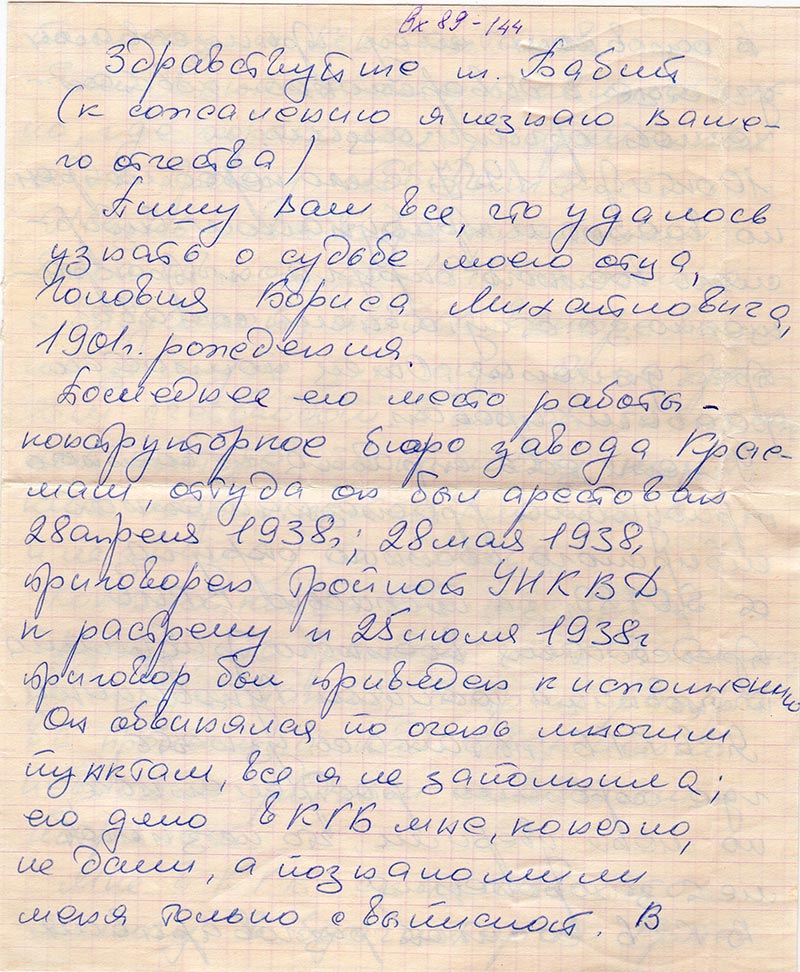 Вх 89-144
Здравствуйте т. Бабий
(к сожалению я не знаю Ваше-
го отчества)
Пишу Вам все, что удалось
узнать о судьбе моего отца,
Головня Бориса Михайловича,
1901г. рождения.
Последнее его место работы -
конструкторное бюро завода Крас-
маш, откуда он был арестован
28 апреля 1938г; 28 мая 1938г
приговорен тройкой УНКВД
к растрелу и 25 июля 1938г
приговор был приведен к исполнению
Он обвинялся по очень многим
пунктам, все я не запомнила;
его дело в КГБ мне, конечно,
не дали, а познакомили
меня только с выпиской. В